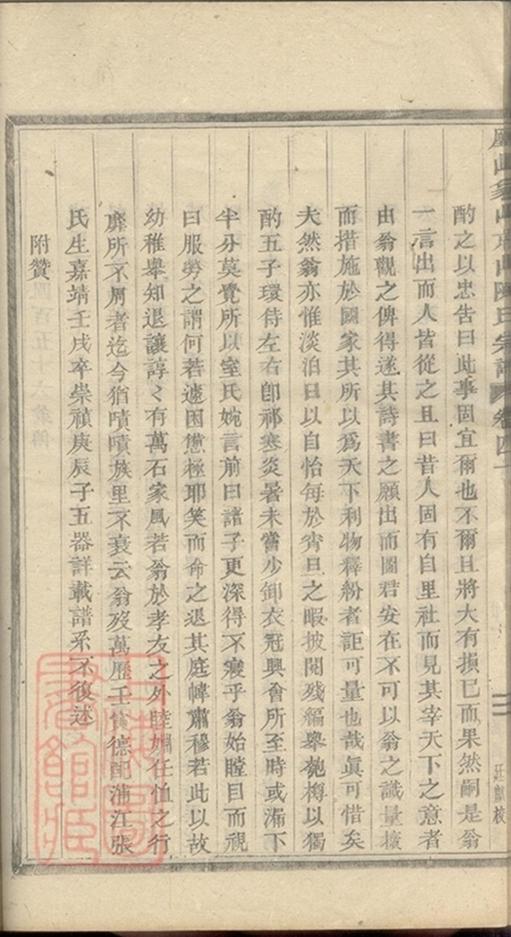 酌之以忠告曰此事固宜爾也不爾且將大有損巳而果然嗣是翁
一言出而人皆從之且曰昔人固有自里社而見其宰天下之意者
由翁觀之俾得遂其詩書之願出而圖君安在不可以翁之識量擴
而措施於國家其所以爲天下利物釋紛者詎可量也哉眞可惜矣
夫然翁亦惟淡泊日以自怡每於宵旦之暇披閱殘編舉匏樽以獨
酌五子環侍左右卽祁寒炎暑未嘗少卸衣冠興會所至時或漏下
半分莫覺所以室氏婉言前曰諸子更深得不寢乎翁始瞠目而視
曰服勞之謂何若遽困憊極耶笑而命之退其庭幃肅穆若此以故
幼稚舉知退讓諄〻有萬石家風若翁於孝友之外睦婣任恤之行
靡所不屑者迄今猶嘖嘖族里不衰云翁歿萬歷壬寅德配蒲江張
氏生嘉靖壬戌卒崇禎庚辰子五器詳載譜系不復述
附贊